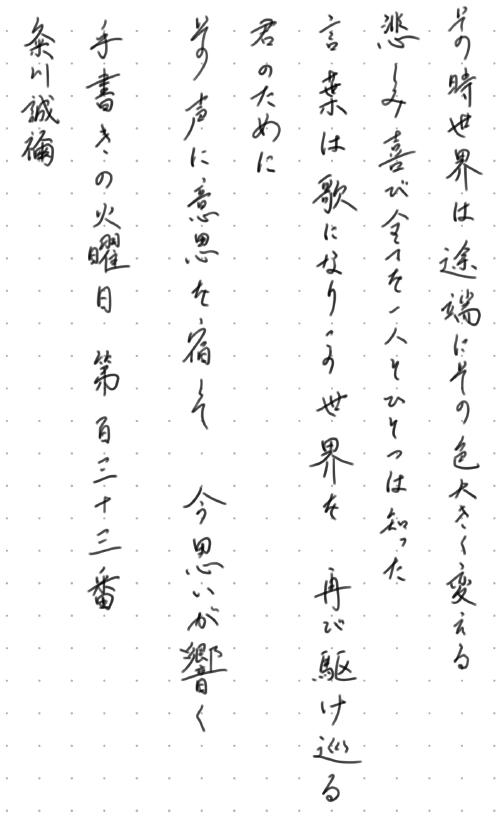 その時世界は途端にその色大きく変える
悲しみ喜び全てを一人とひとつは知った
言葉は歌になりこの世界を 再び駆け巡る
君のために
その声に意思を宿して 今思いが響く
手書きの火曜日 第百三十三番
粂川誠禰